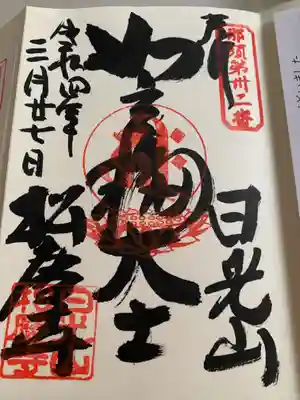 奉拝
那須第卅二番
日光山
如意輪大士
令和四年
三月廿七日
松慶寺